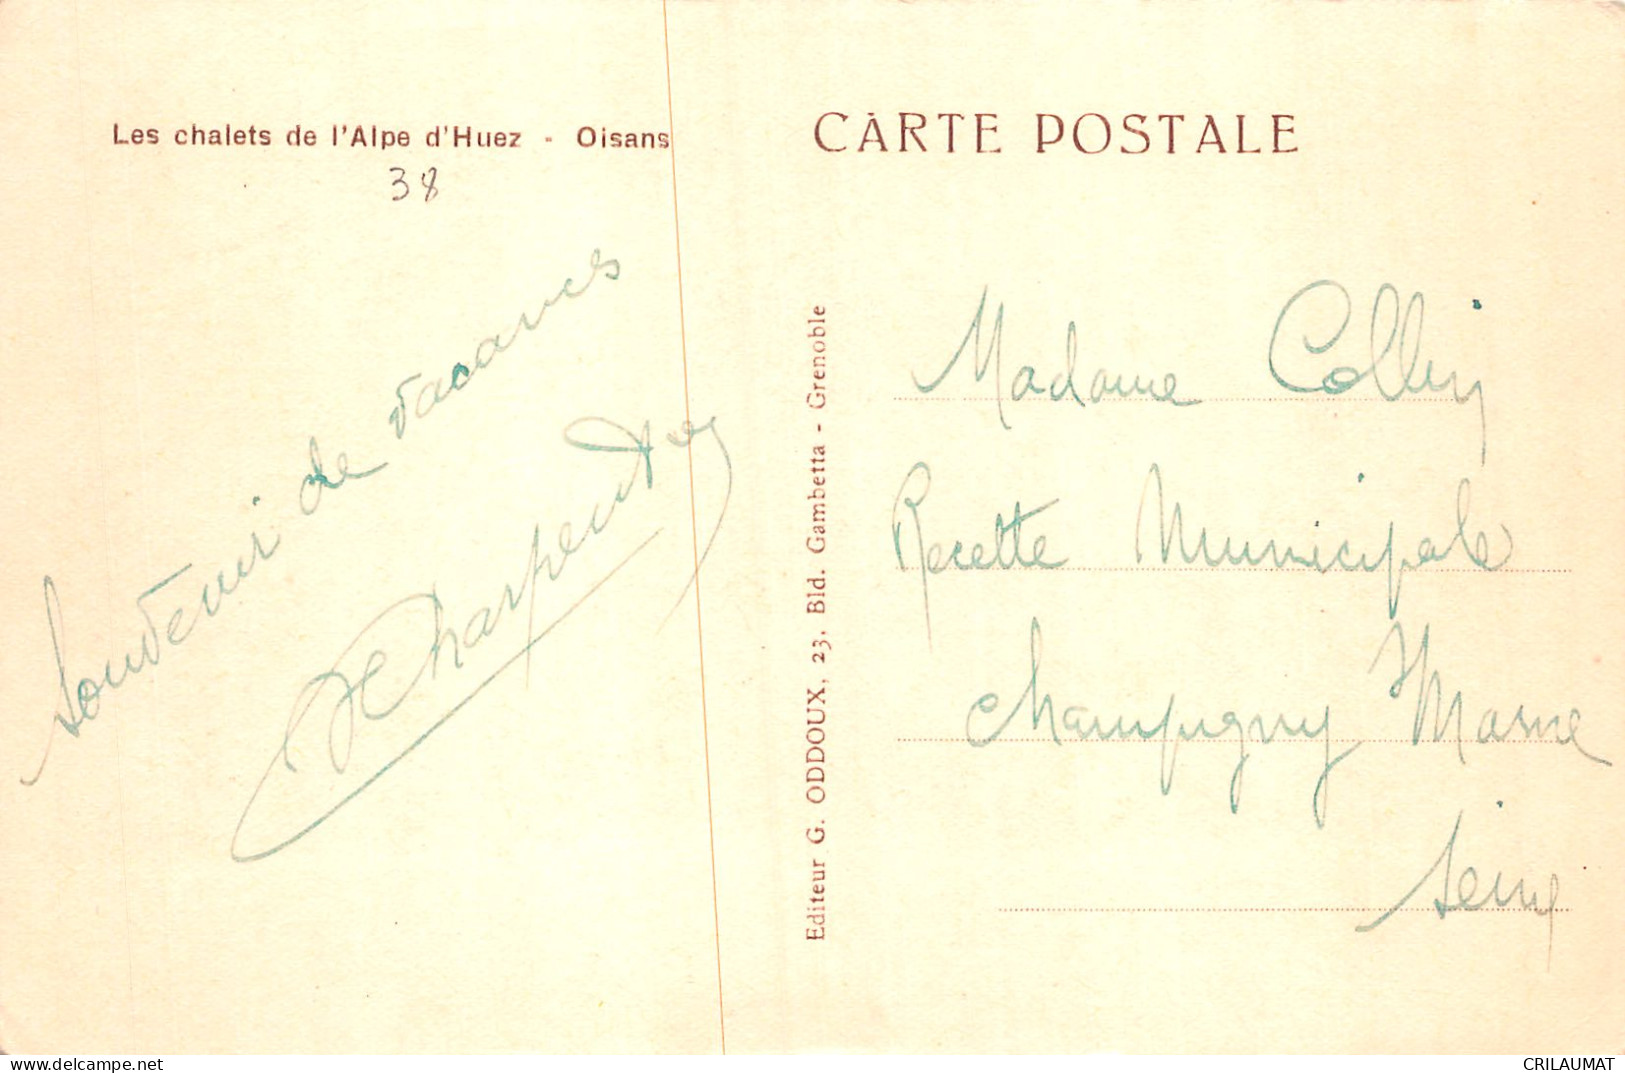 Les chalets de l'Alpe d'Huez - Oisans
38
Souvenir de vacances
Charpentier
CARTE POSTALE
Editeur G. ODDOUX, 23, Bld. Gambetta - Grenoble
Madame Collin
Recette Municipale
Champigny s/ Marne
Seine
www.delcampe.net
CRILAUMAT